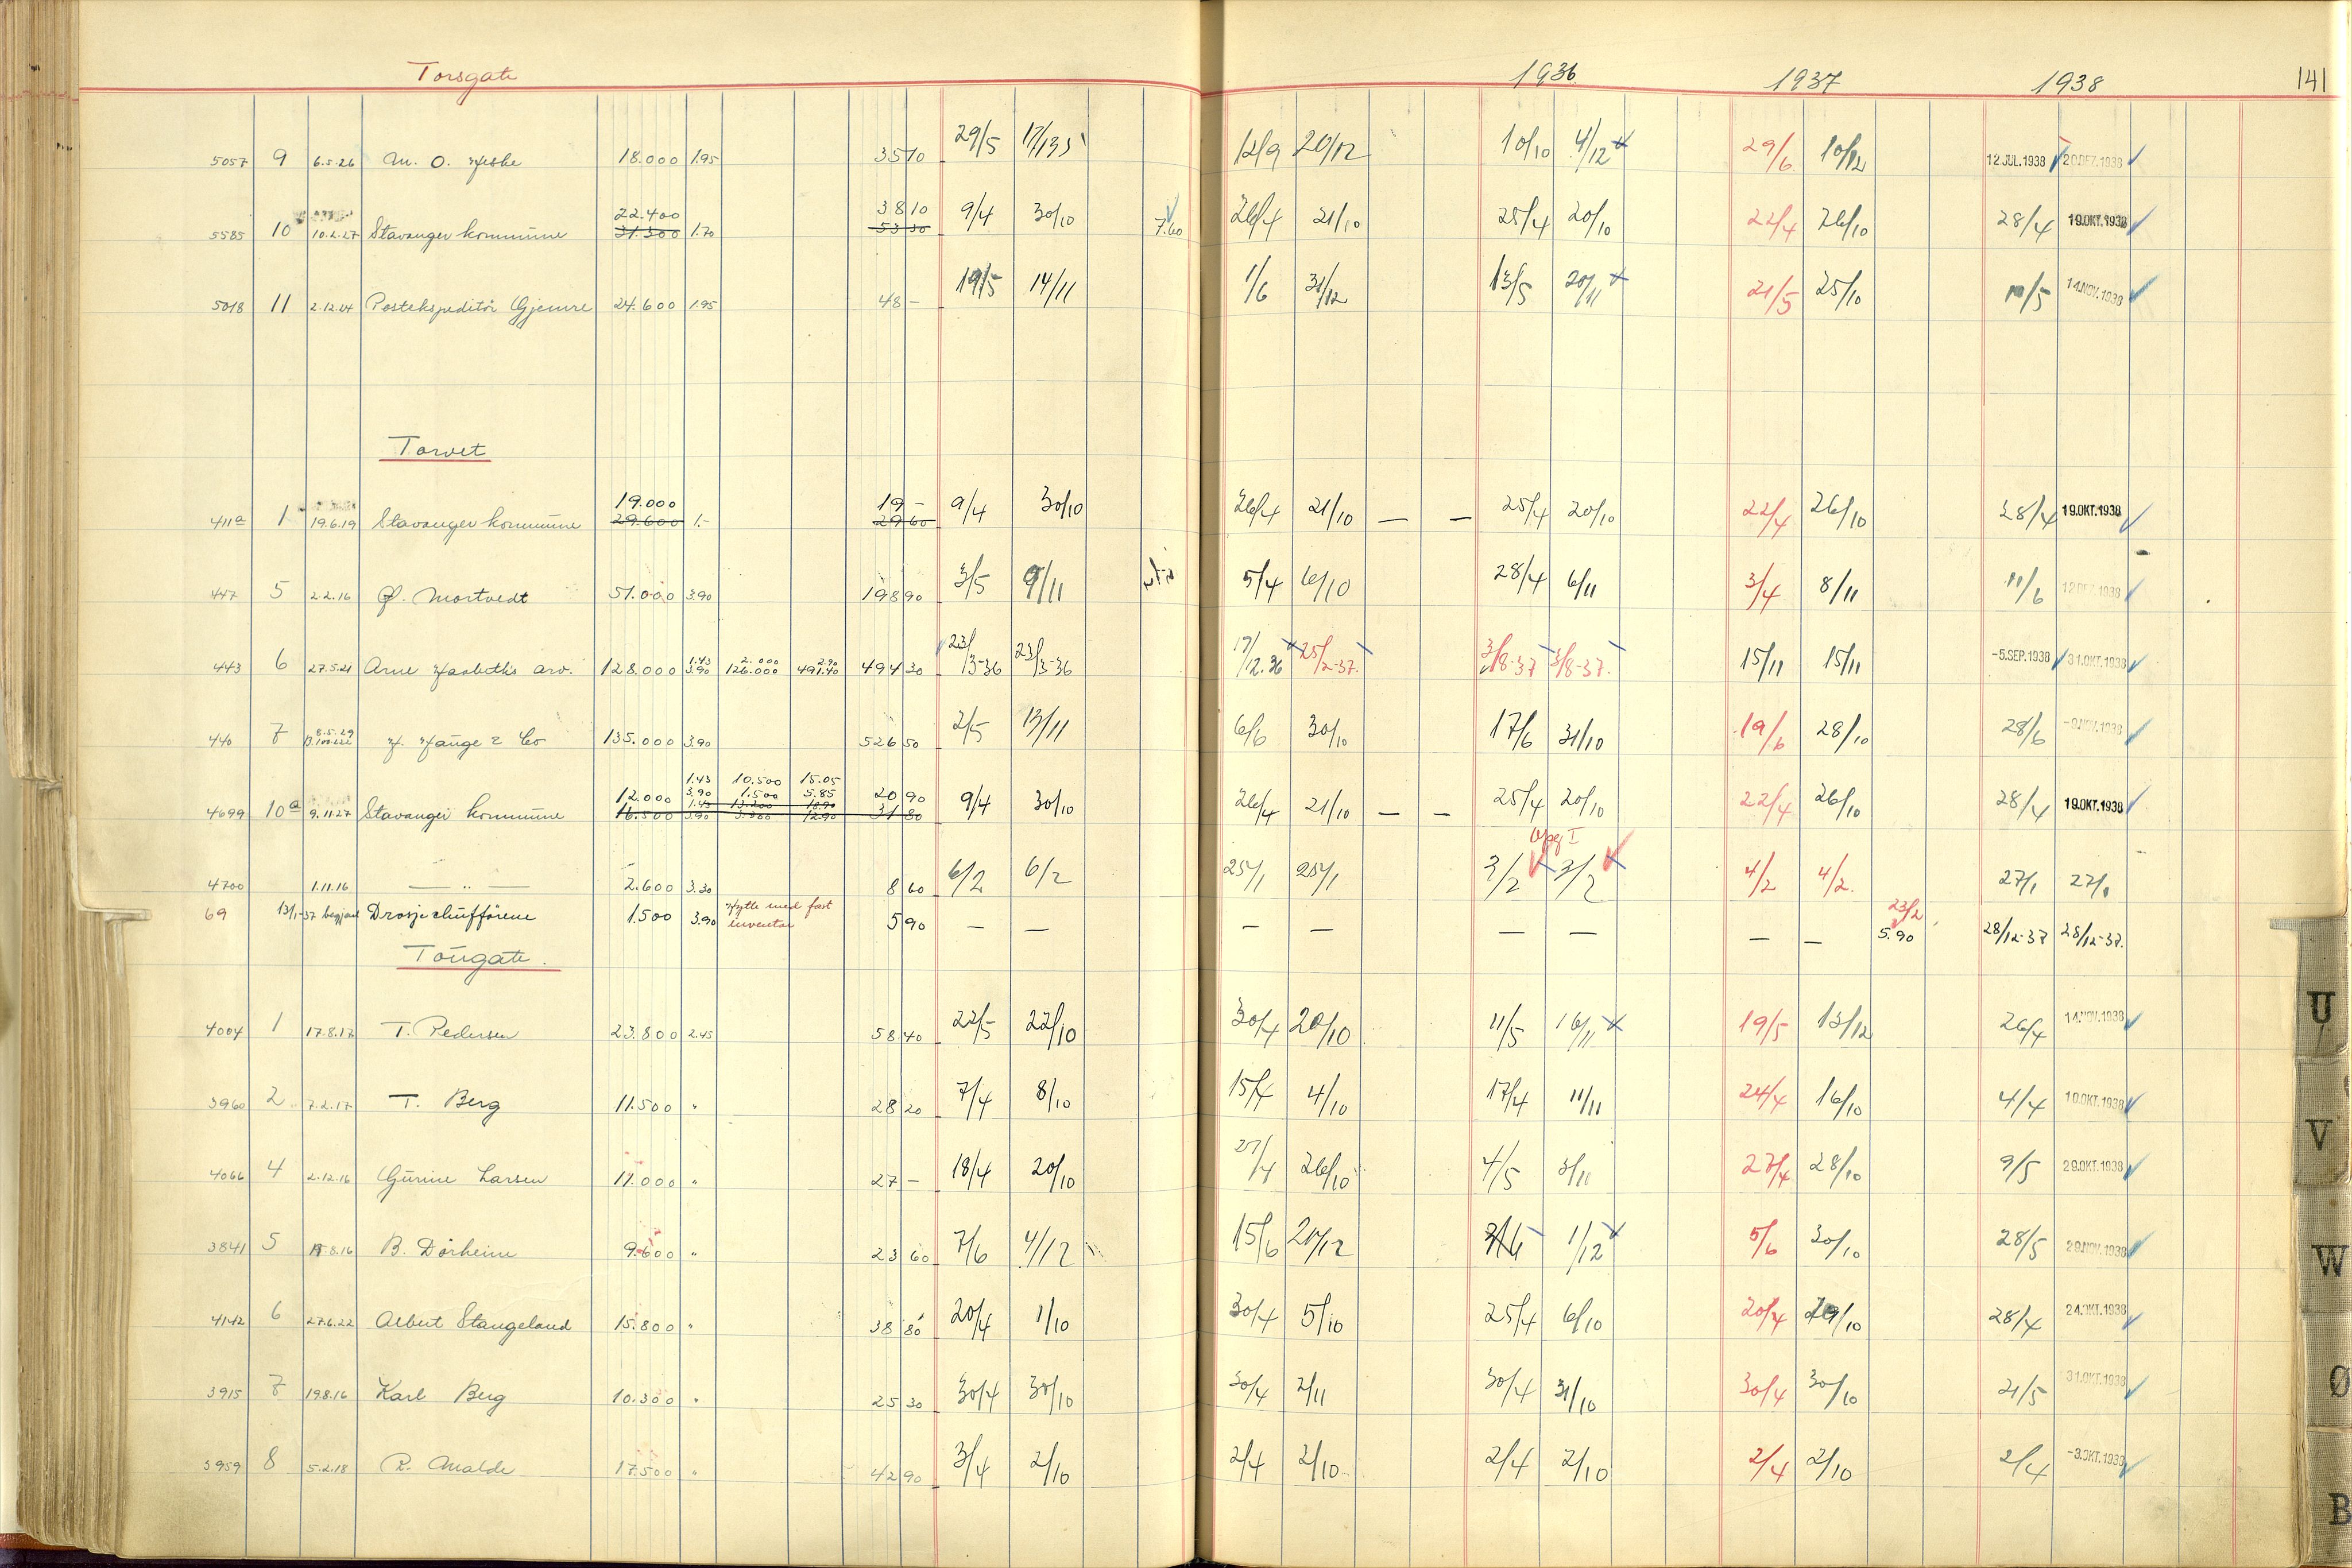 Torsgate 1936 1937 1938 141
5057 9 6.5.26 M. O. 18.000 1.95 35 10 29/5 12/9 20/12 10/10 4/12 29/6 10/12 12.JUL.1938 20.DEZ.1938
22.400 38 10
5585 10 10.2.27 Stavanger kommune 31.300 1.70 53 30 9/4 30/10 7.60 26/4 21/10 25/4 20/10 22/4 26/10 28/4 19.OKT.1938
5018 11 2.12.24 Postekspeditör Gjemre 24.600 1.95 48 – 19/5 14/11 1/6 31/12 13/5 20/11 21/5 25/10 10/5 14.NOV.1938
Torvet
19.000 19 –
411a 1 19.6.19 Stavanger kommune 29.600 1.- 29 60 9/4 30/10 26/4 21/10 — — 25/4 20/10 22/4 26/10 28/4 19.OKT.1938
447 5 2.2.16 Mortvedt 51.000 3.90 198 90 3/5 9/11 5/4 6/10 28/4 6/11 3/4 8/11 11/6 12.DEZ.1938
1.43 2.000 2.90
443 6 27.5.21 Arne arv. 128.000 3.90 126.000 491.40 494 30 23/3-36 23/3-36 17/12.36 25/2-37. 3/8-37 3/8-37. 15/11 15/11 -5.SEP.1938 31.OKT.1938
8.5.29
440 7 & Co 135.000 3.90 526 50 2/5 13/11 6/6 30/10 17/6 31/10 19/6 28/10 28/6 -9.NOV.1938
1.43 10.500 15.05
12.000 3.90 1.500 5.85 20 90
4699 10a 9.11.27 Stavanger kommune 16.500 1.43 13.200 18.90 3.90 3.300 12.90 31 80 9/4 30/10 26/4 21/10 — — 25/4 20/10 22/4 26/10 28/4 19.OKT.1938
4700 1.11.16 — „ — 2.600 3.30 8 60 6/2 6/2 25/1 25/1 3/2 3/2 4/2 4/2. 27/1 27/1
69 13/1-37 Drosjechaufførene 1.500 3.90 Hytte med fast inventar 5 90 — — — — — — — — 23/2 5.90 28/12-37 28/12-37.
Tougate.
4004 1 17.8.17 T. Pedersen 23.800 2.45 58 40 22/5 22/10 30/4 20/10 11/5 16/11 19/5 13/12 26/4 14.NOV.1938
3960 2 7.2.17 T. Berg 11.500 " 28 20 7/4 8/10 15/4 4/10 17/4 11/11 24/4 16/10 4/4 10.OKT.1938
4066 4 2.12.16 Gurine Larsen 11.000 " 27 – 18/4 20/10 27/4 26/10 4/5 3/11 27/4 28/10 9/5 29.OKT.1938
3841 5 15.8.16 B. Dørheim 9.600 " 23 60 7/6 4/12 15/6 20/12 1/12 5/6 30/10 28/5 29.NOV.1938
4142 6 27.6.22 Albert Stangeland 15.800 " 38 80 20/4 1/10 30/4 5/10 25/4 6/10 20/4 29/10 28/4 24.OKT.1938
3915 7 19.8.16 Karl Berg 10.300 " 25 30 30/4 30/10 30/4 2/11 30/4 31/10 30/4 30/10 21/5 31.OKT.1938
3959 8 5.2.18 R. Malde 17.500 " 42 90 3/4 2/10 2/4 2/10 2/4 2/10 2/4 2/10 2/4 -3.OKT.1938
U
V
W
Ø
B